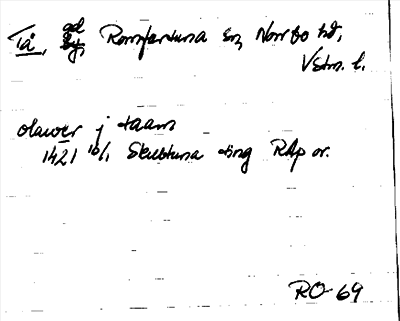 Tå, gd Romfartuna sn, Norrbo hd,
Vstm. l.
olawer j taam
1421 10/1 Skultuna ting RAp or.
RO 69